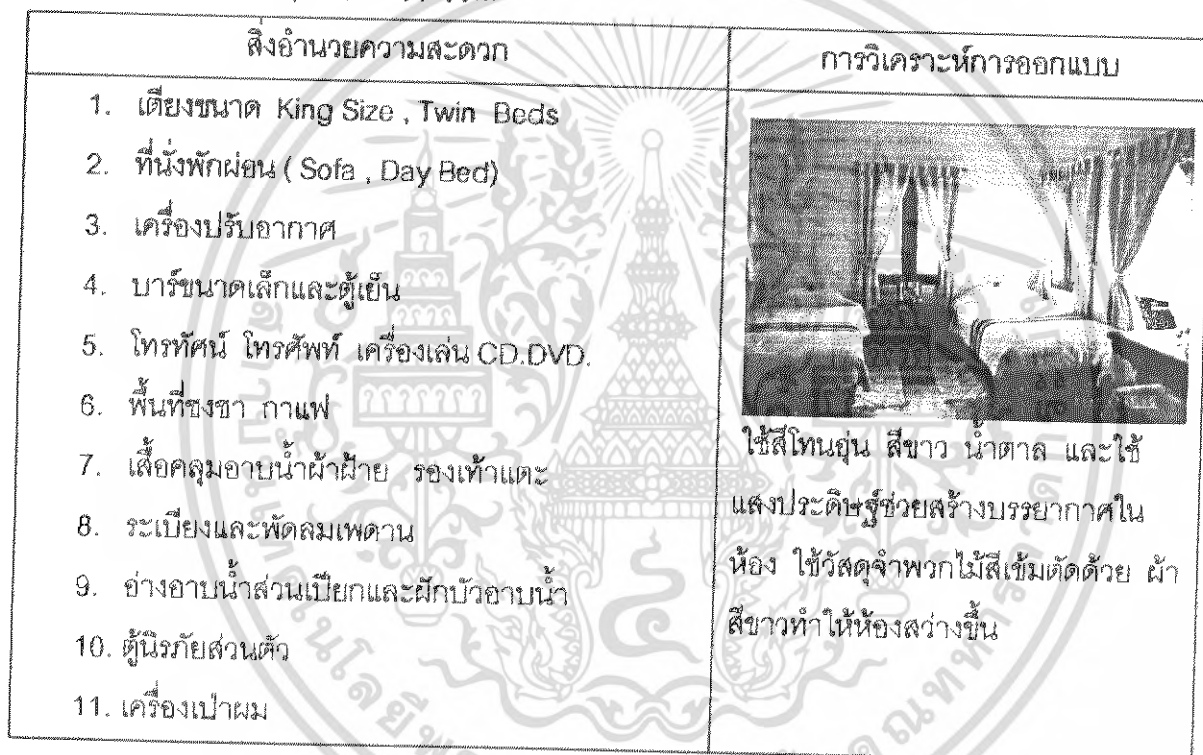 สิ่งอำนวยความสะดวก
การวิเคราะห์การออกแบบ
1. เตียงขนาด King Size , Twin Beds
2. ที่นั่งพักผ่อน ( Sofa , Day Bed)
3. เครื่องปรับอากาศ
4. บาร์ขนาดเล็กและตู้เย็น
5. โทรทัศน์ โทรศัพท์ เครื่องเล่น CD.DVD.
6. พื้นที่ชงชา กาแฟ
7. เสื้อคลุมอาบน้ำผ้าฝ้าย รองเท้าแตะ
8. ระเบียงและพัดลมเพดาน
9. อ่างอาบน้ำส่วนเปียกและฝักบัวอาบน้ำ
10. ตู้นิรภัยส่วนตัว
11. เครื่องเป่าผม
ใช้สีโทนอุ่น สีขาว น้ำตาล และใช้
แสงประดิษฐ์ช่วยสร้างบรรยากาศใน
ห้อง ใช้วัสดุจำพวกไม้สีเข้มตัดด้วย ผ้า
สีขาวทำให้ห้องสว่างขึ้น